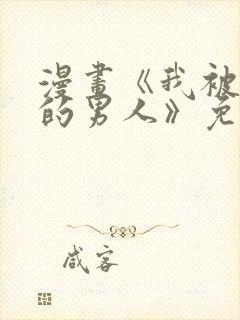 漫畫《我被
的男人》免
咸客